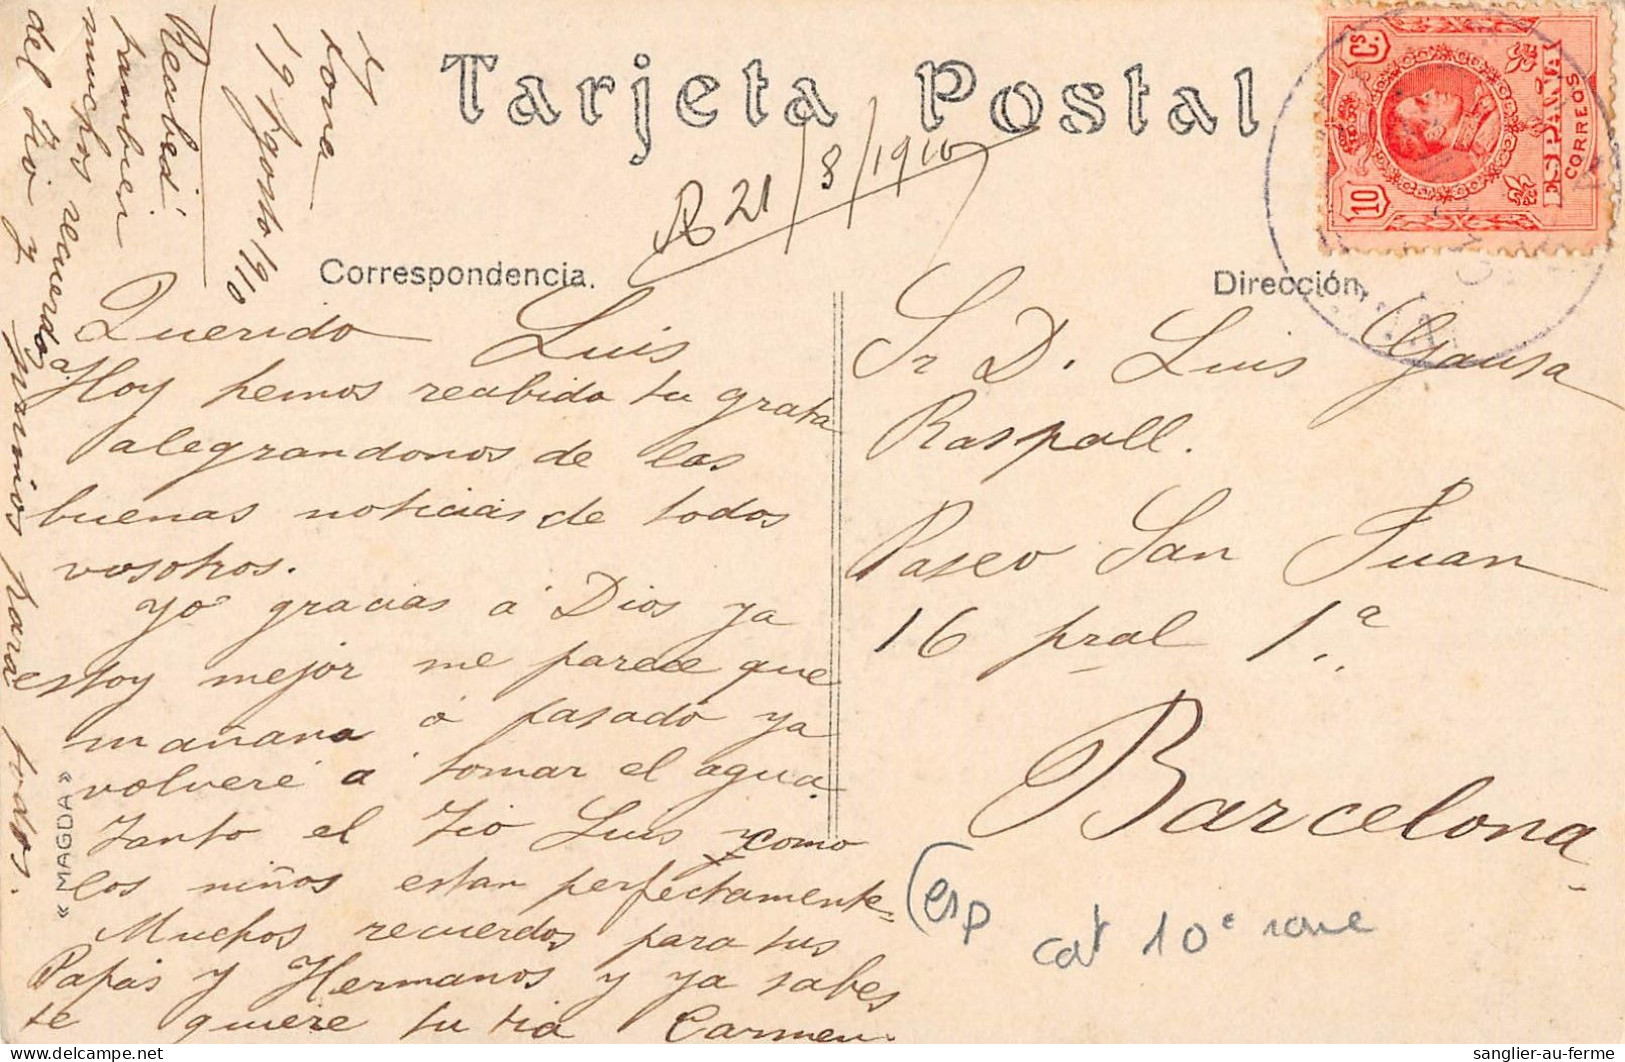 Tarjeta Postal
R 21/8/1910
Correspondencia.
Dirección,
10 Cs.
ESPAÑA
CORREOS
10
19 Agosto 1910
Querido Luis
Hoy hemos reabido tu grata
alegrandonos de las
buenas noticias de todos
vosotros.
Yo gracias á Dios ya
estoy mejor me parece que
mañana ó pasado ya
volveré á tomar el agua.
Tanto el Tio Luis y como
los niños estan perfectamente=
Muchos recuerdos para tus
Papás y Hermanos y ya sabes
te quiere tu tia Carmen.
Reabed
tambien
muchos recuerdos
del Tio y
primos para todos.
« MAGDA »
Sr D. Luis Gausa
Raspall.
Paseo San Juan
16 pral 1ª
Barcelona
(esp
cat 10e
sanglier-au-ferme